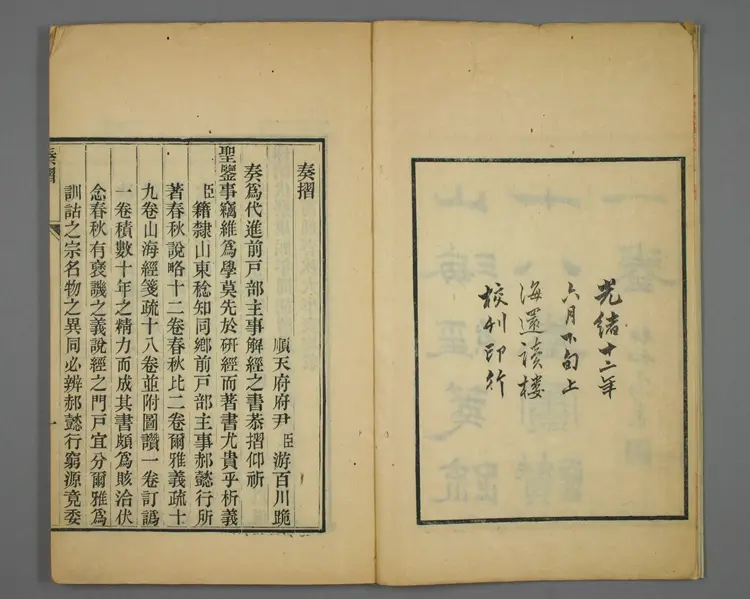 光緒十二年
六月下旬上
海還讀樓
校刊印行
奏摺
順天府府尹臣游百川跪
奏爲代進前戶部主事解經之書恭摺仰祈
聖鑒事竊維爲學莫先於研經而著書尤貴乎析義
臣籍隸山東稔知同鄉前戶部主事郝懿行所
著春秋說略十二卷春秋比二卷爾雅義疏十
九卷山海經箋疏十八卷並附圖讚一卷訂譌
一卷積數十年之精力而成其書頗爲賅洽伏
念春秋有襃譏之義說經之門戶宜分爾雅爲
訓詁之宗名物之異同必辨郝懿行窮源竟委
奏摺
一